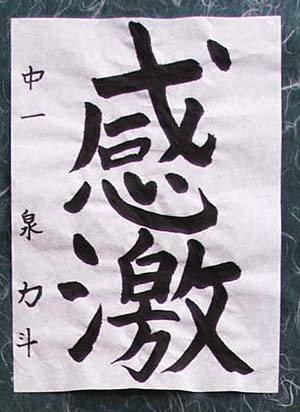 感激
中一 泉力斗